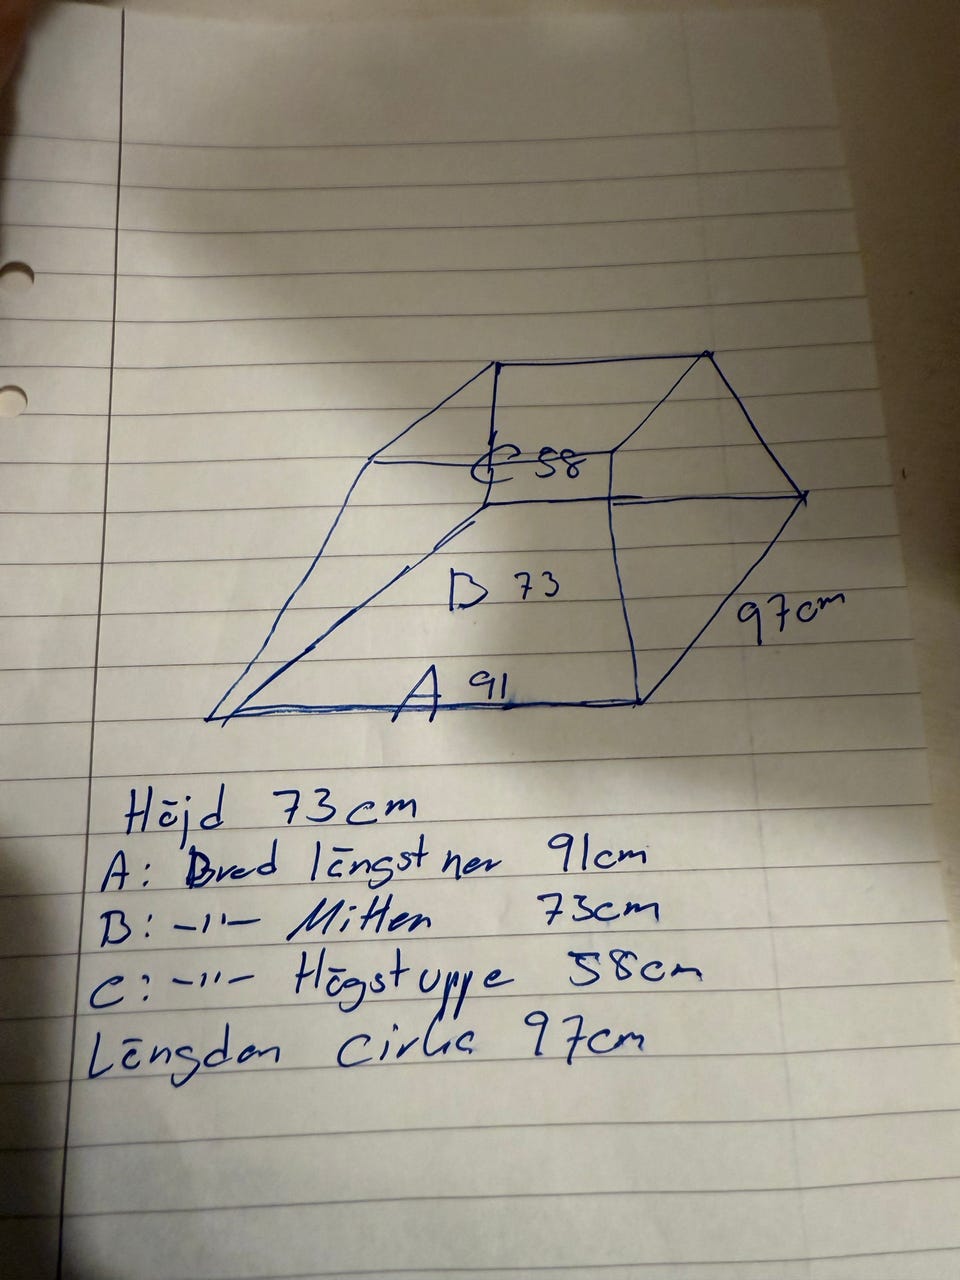 C 58
B 73
97cm
A 91
Höjd 73cm
A: Bred längst ner 91cm
B: -"- Mitten 73cm
C: -"- Högst uppe 58cm
Längden cirka 97cm